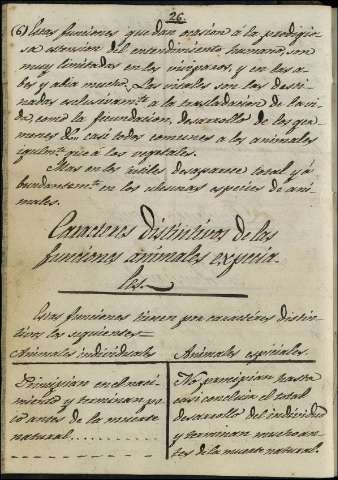 26.
(6) Estas funciones que dan ocasion á la prodigio-
sa estension del entendimiento humano, son
muy limitadas en los viviparos, y en las a-
bes y abia mucho. Los vitales son las desti-
nadas esclusivam.te a la trasladacion de la vi-
da, como la fecundacion, desarrollo de los ger-
menes &c. casi todos comunes a los animales
igualm.te que á los vegetales.
Mas en los reptiles desaparece total y á
bundantem.te en las ultimas especies de ani-
males.
Caracteres distintivos de las
funciones animales especia-
les.
Estas funciones tienen por caractéres distin-
tivos los siguientes=
Animales individuales
Principian en el naci-
miento y terminan po-
co antes de la muerte
natural.
Animales especiales.
No principian hasta
casi concluir el total
desarrollo del individuo
y terminan mucho an-
tes de la muerte natural.